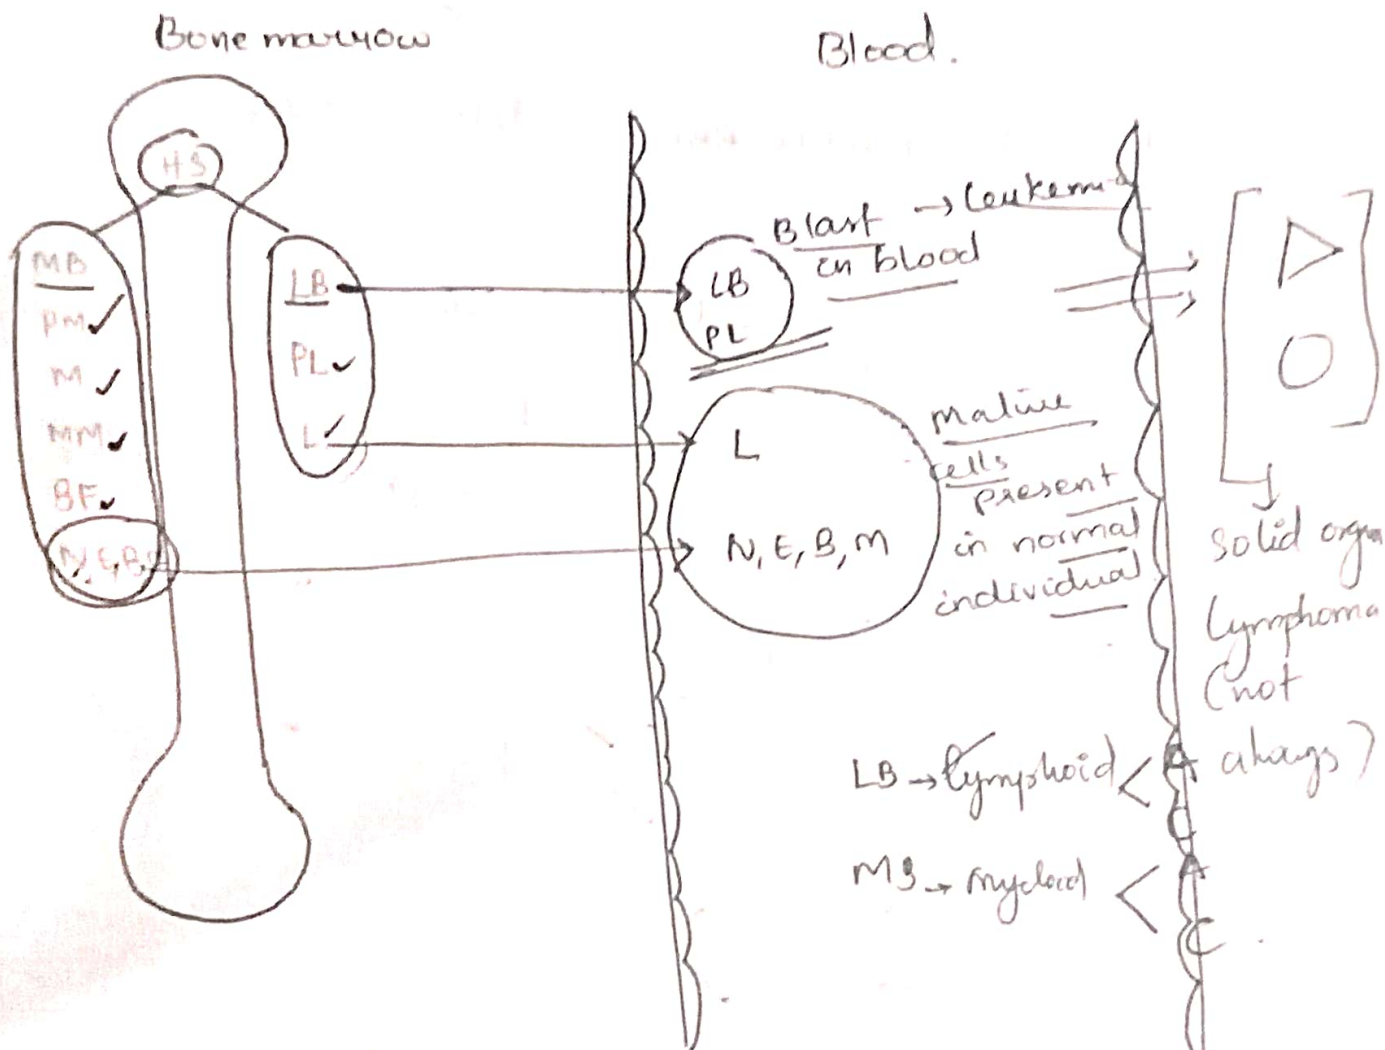 Bone marrow
Blood.
HB
MB
PM
M
MM
BF
N, E, B
LB
PL
L
Blast → leukemia
in blood
LB
PL
L
N, E, B, M
mature
cells
present
in normal
individual
solid organ
Lymphoma
(not
always)
LB → Lymphoid < A
C
MB → myeloid < A
C